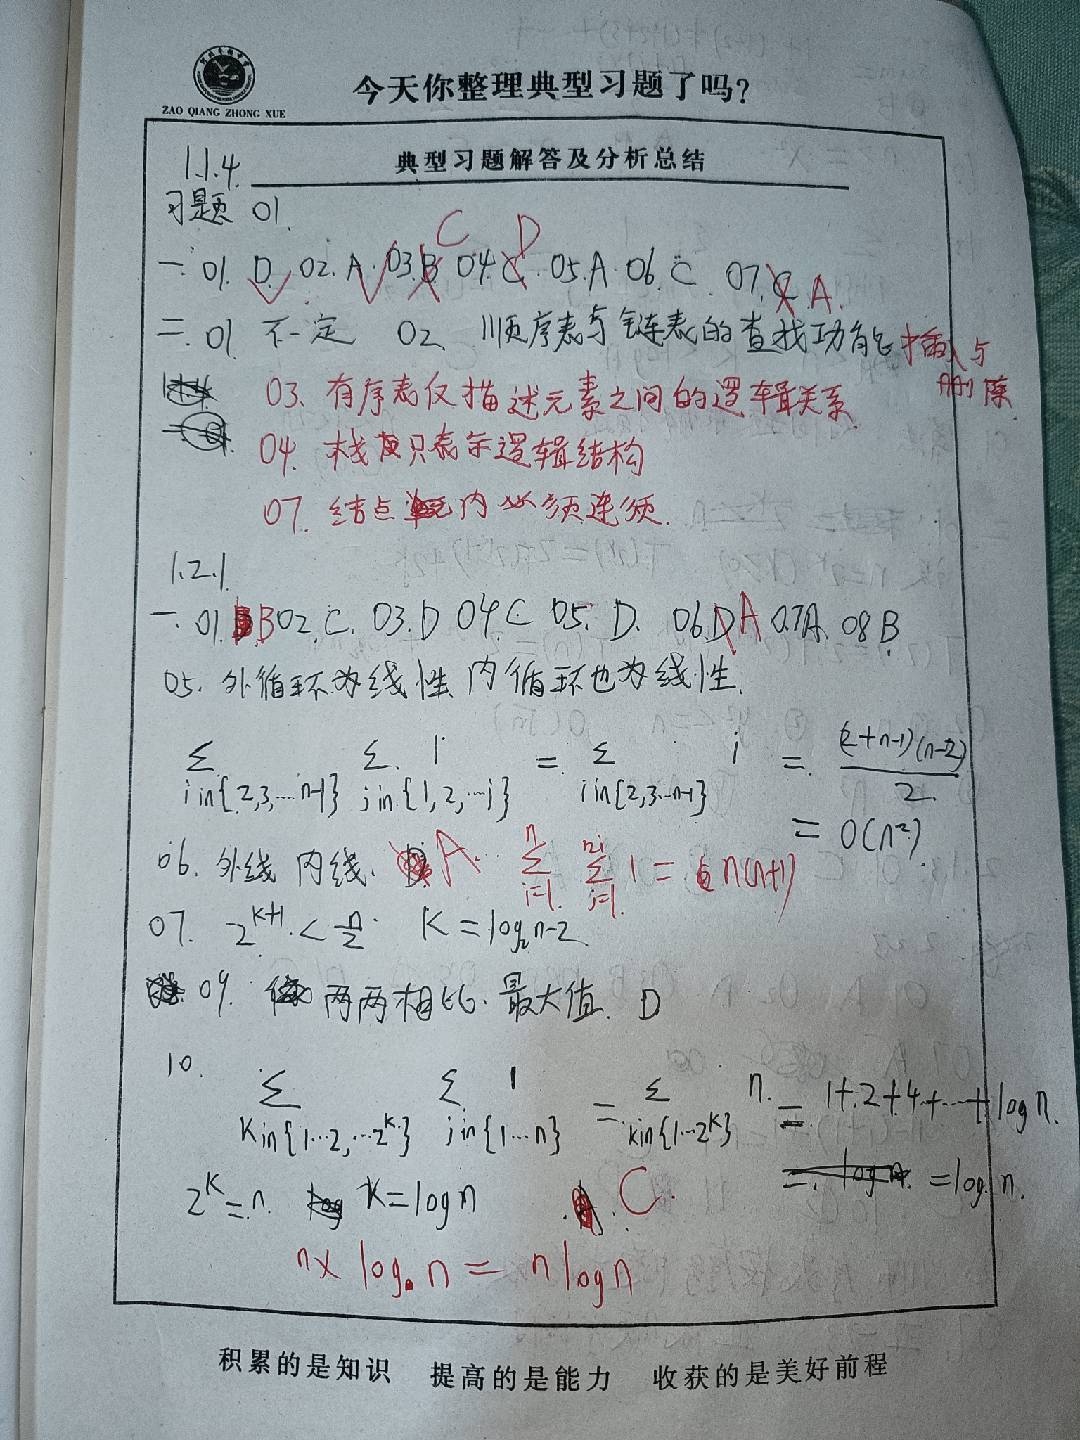 今天你整理典型习题了吗?
ZAO QIANG ZHONG XUE
典型习题解答及分析总结
1.1.4.
习题 01.
一. 01. D. 02. A. 03. B C 04. C D 05. A. 06. C. 07. C A.
二. 01. 不一定 02. 顺序表与链表的查找功能 插入与
删除
03. 有序表仅描述元素之间的逻辑关系.
04. 栈只表示逻辑结构
07. 结点内必须连须.
1.2.1.
一. 01. B 02. C. 03. D 04. C 05. D. 06. D A 07A. 08 B
05. 外循环为线性, 内循环也为线性.
Σ i in{2,3,...n-1} Σ j in{1,2,...i} 1 = Σ i in{2,3...n-1} i = (2+n-1)(n-2)/2
= O(n²).
06. 外线 内线. A. Σ i=1 n Σ j=1 2i 1 = n(n+1)
07. 2^{k+1} < n/2 K = log₂n-2.
09. 两两相比. 最大值. D
10.
Σ K in{1...2,...2^k} Σ j in{1...n} 1 = Σ kin{1...2^k} n. = 1+2+4+...+log n.
2^k = n. K = log n C. = log n.
n× log n = n log n
积累的是知识 提高的是能力 收获的是美好前程